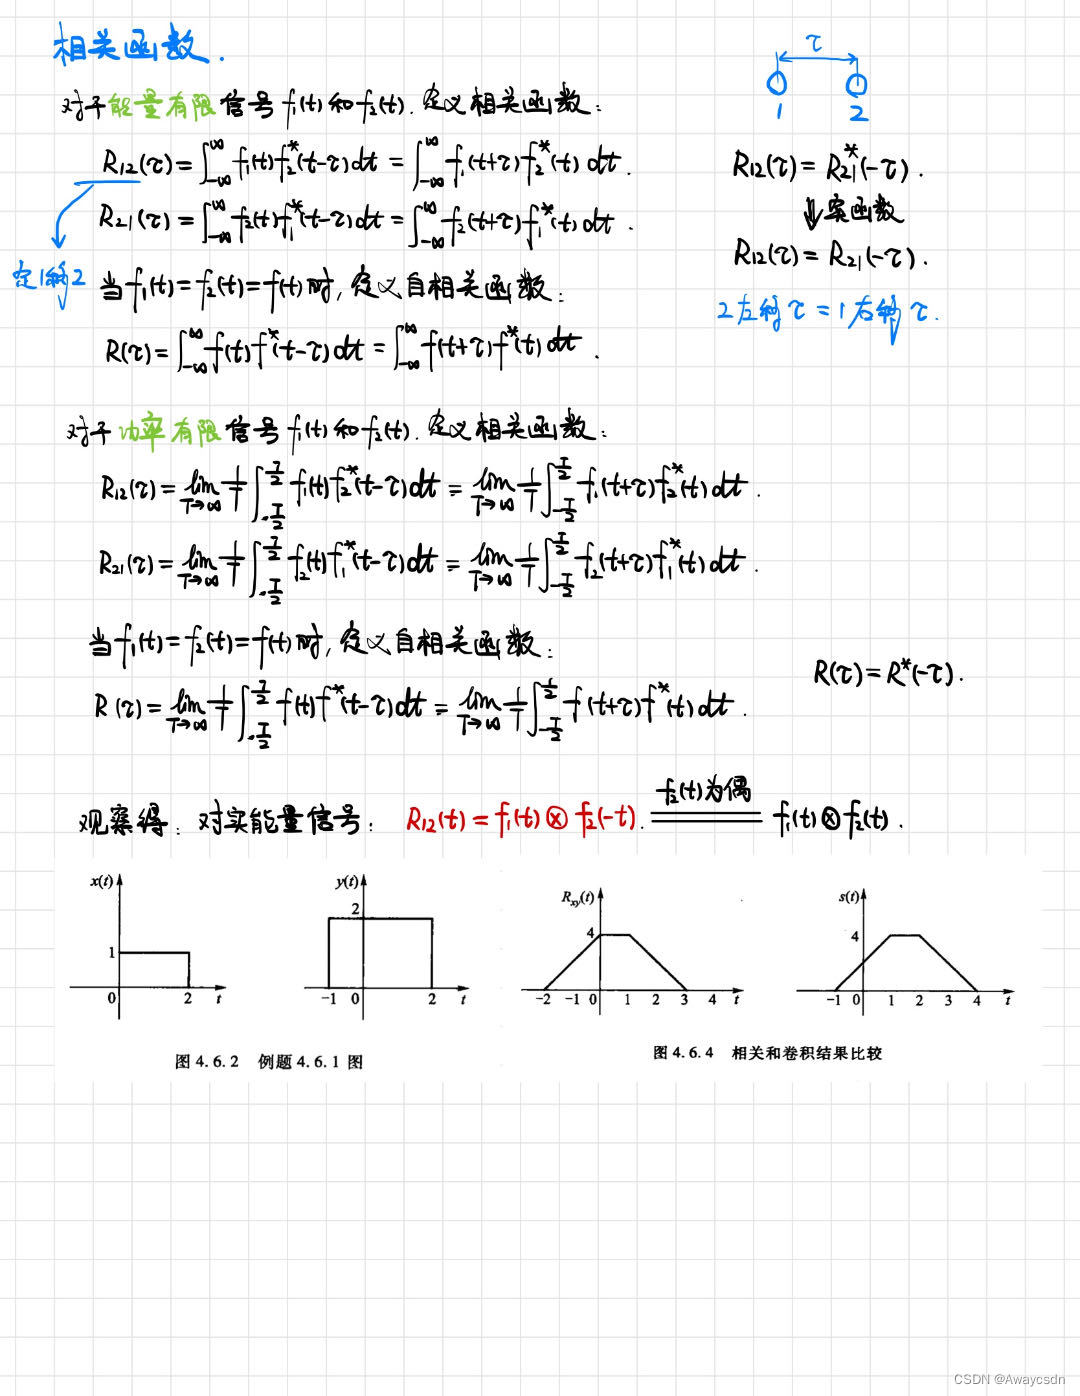 相关函数.
τ
1 2
对于能量有限信号 f₁(t) 和 f₂(t). 定义相关函数:
R₁₂(τ) = ∫_{-∞}^{∞} f₁(t)f₂*(t-τ)dt = ∫_{-∞}^{∞} f₁(t+τ)f₂*(t) dt.
R₁₂(τ) = R₂₁*(-τ).
R₂₁(τ) = ∫_{-∞}^{∞} f₂(t)f₁*(t-τ)dt = ∫_{-∞}^{∞} f₂(t+τ)f₁*(t) dt.
⇓实函数
R₁₂(τ) = R₂₁(-τ).
定1移2
当 f₁(t) = f₂(t) = f(t) 时, 定义自相关函数:
2左移τ = 1右移τ.
R(τ) = ∫_{-∞}^{∞} f(t)f*(t-τ)dt = ∫_{-∞}^{∞} f(t+τ)f*(t) dt.
对于功率有限信号 f₁(t) 和 f₂(t). 定义相关函数:
R₁₂(τ) = lim_{T→∞} 1/T ∫_{-T/2}^{T/2} f₁(t)f₂*(t-τ)dt = lim_{T→∞} 1/T ∫_{-T/2}^{T/2} f₁(t+τ)f₂*(t) dt.
R₂₁(τ) = lim_{T→∞} 1/T ∫_{-T/2}^{T/2} f₂(t)f₁*(t-τ)dt = lim_{T→∞} 1/T ∫_{-T/2}^{T/2} f₂(t+τ)f₁*(t) dt.
当 f₁(t) = f₂(t) = f(t) 时, 定义自相关函数:
R(τ) = R*(-τ).
R(τ) = lim_{T→∞} 1/T ∫_{-T/2}^{T/2} f(t)f*(t-τ)dt = lim_{T→∞} 1/T ∫_{-T/2}^{T/2} f(t+τ)f*(t) dt.
f₂(t)为偶
观察得: 对实能量信号: R₁₂(t) = f₁(t)⊗f₂(-t). ═══ f₁(t)⊗f₂(t).
x(t)
1
0 2 t
y(t)
2
-1 0 2 t
R_{xy}(t)
4
-2 -1 0 1 2 3 4 t
s(t)
4
-1 0 1 2 3 4 t
图 4.6.2 例题 4.6.1 图
图 4.6.4 相关和卷积结果比较
CSDN @Awaycsdn